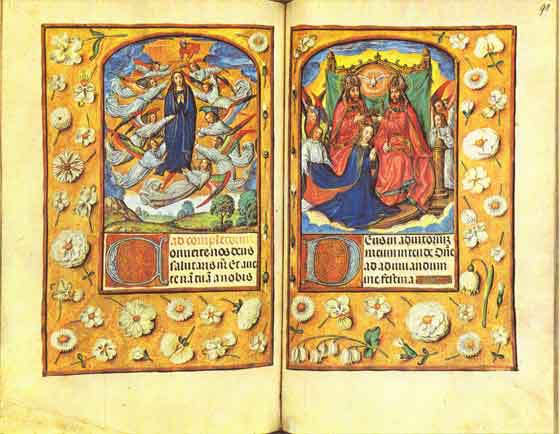 ad completoriū
Conuerte nos deus
salutaris nr̄ Et aue
te irā tuā a nobis
Deus in adiutoriū
meum intende Dn̄e
ad adiuuandum
me festina